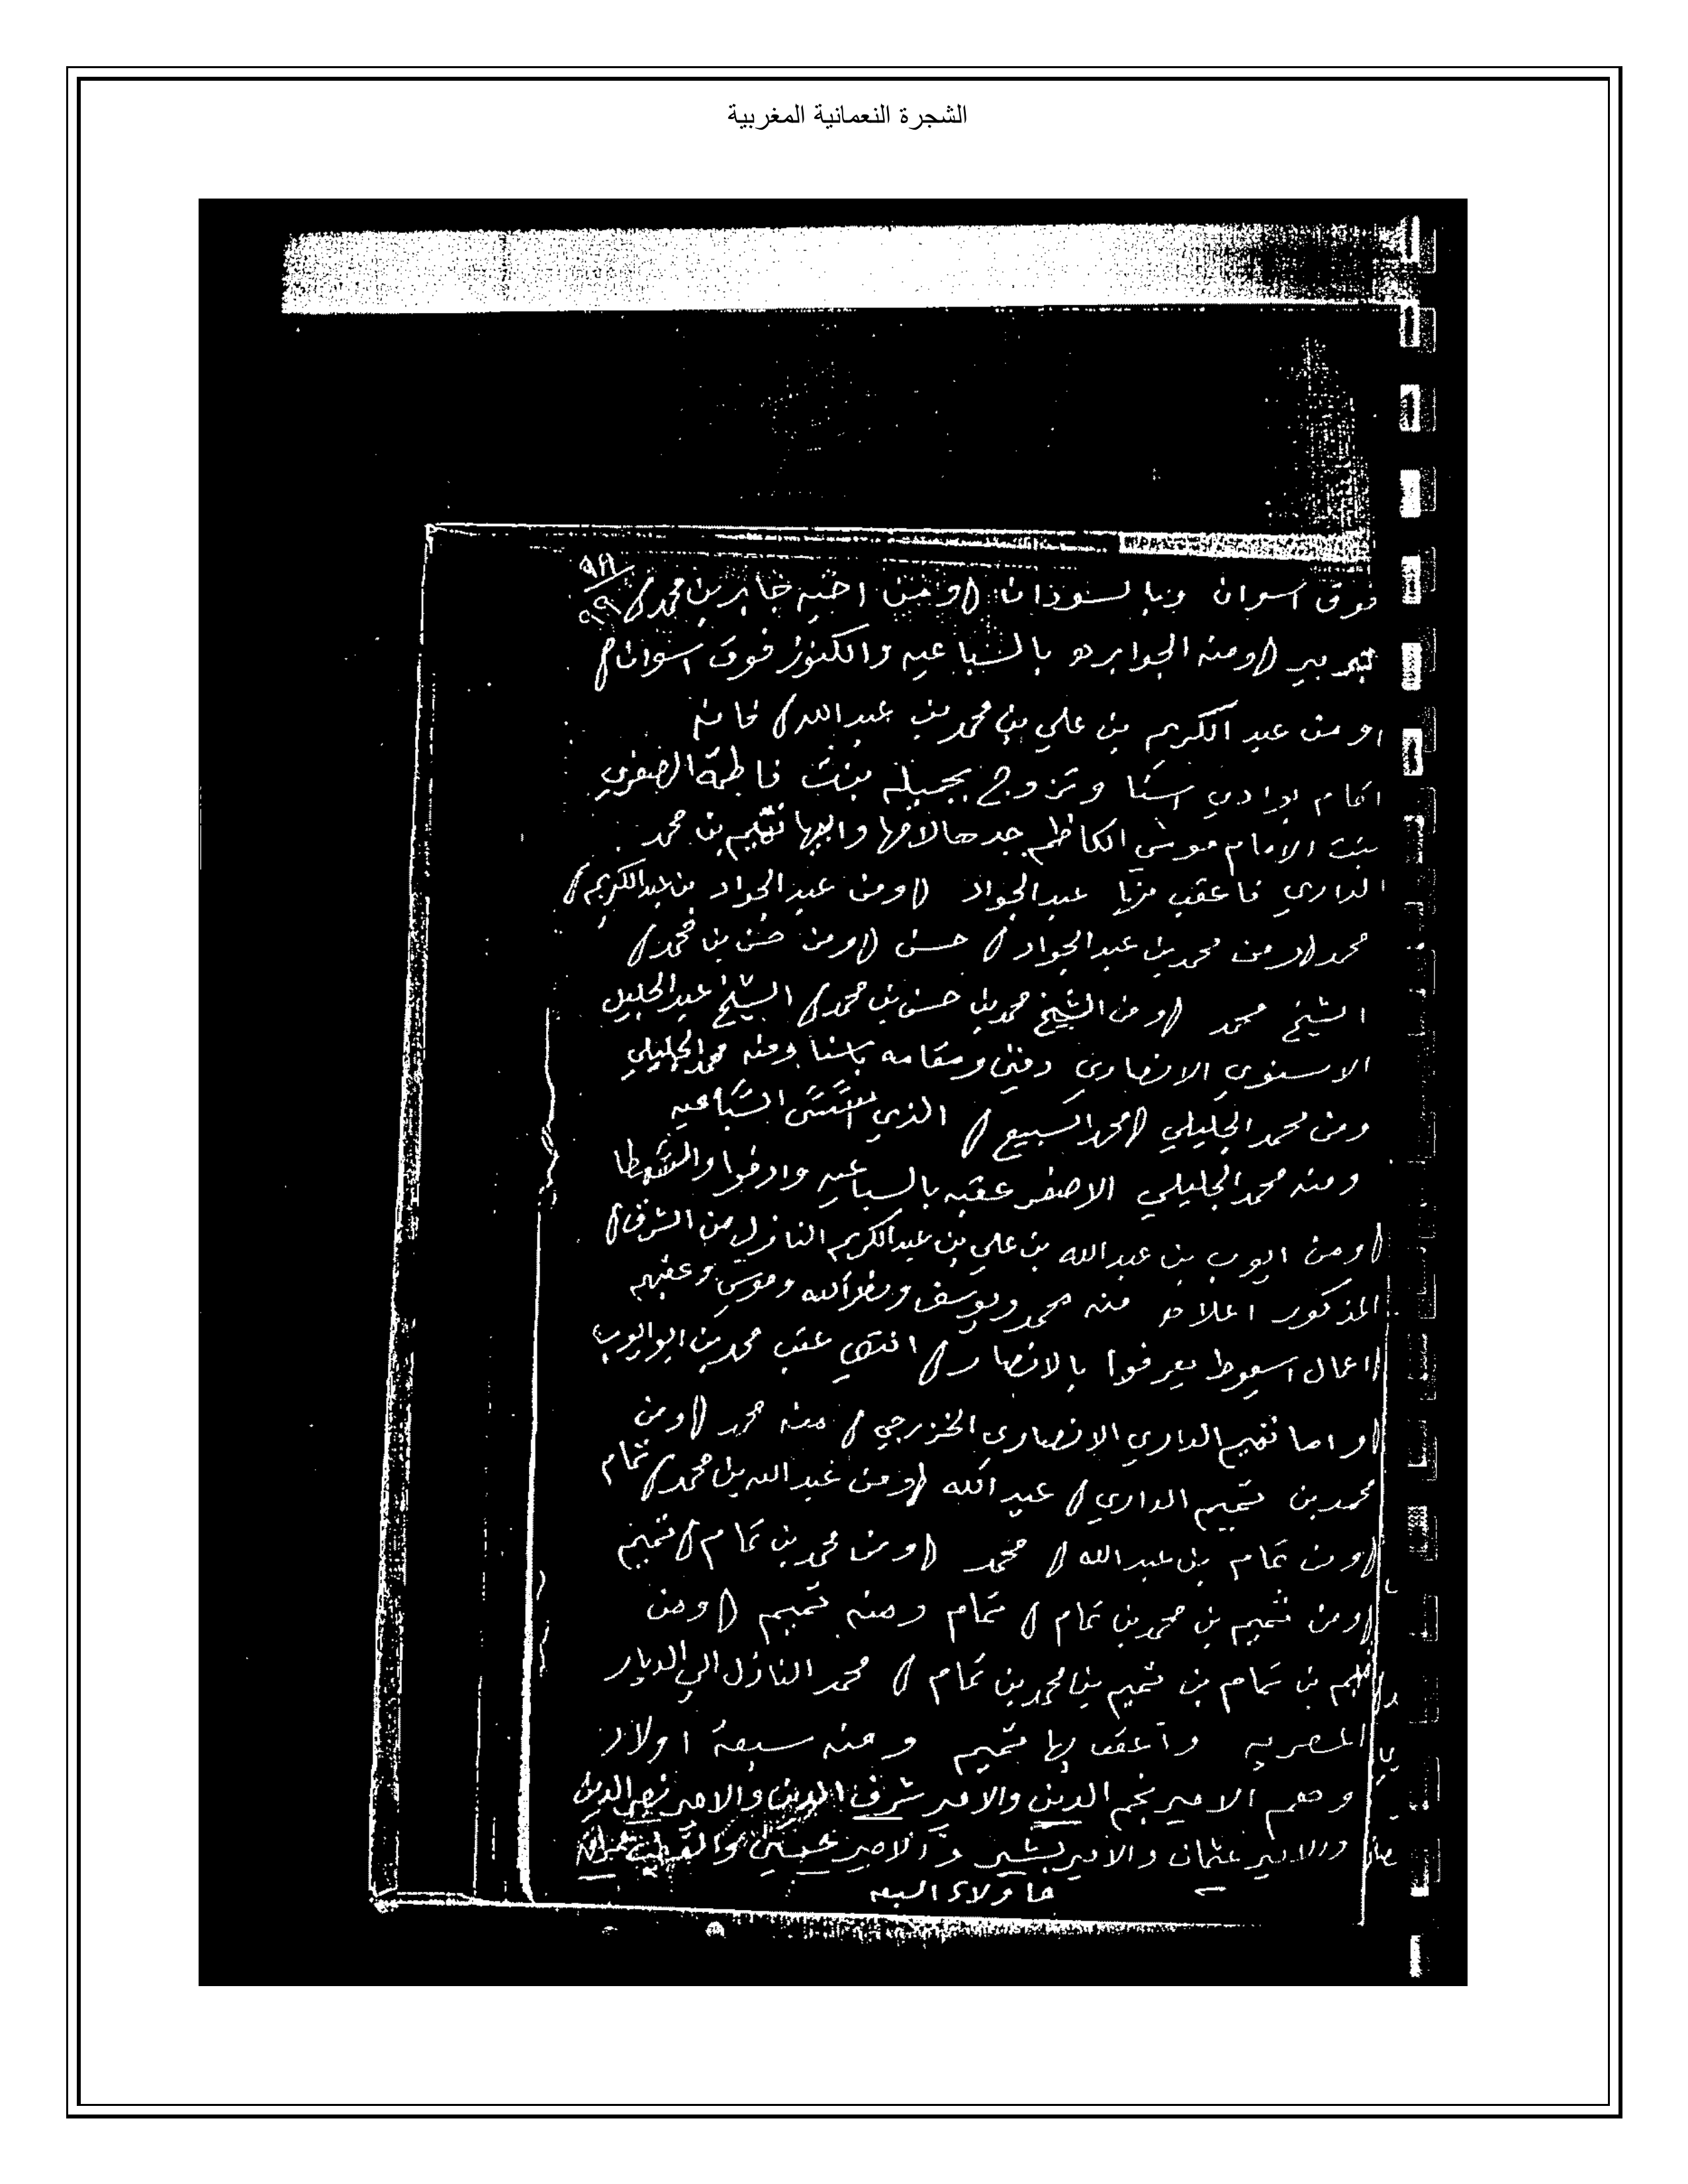 الشجرة النعمانية المغربية
٩٨
٩٩
فوق اسوان وبالسودان (ومن اخيه جابر بن محمد)
(ومنه الجوابره بالسباعيه والكنوز فوق اسوان)
ومن عبد الكريم بن علي بن محمد بن عبدالله) فانه
اقام بوادي اسنا وتزوج بجميله بنت فاطمة الصغرى
بنت الامام موسي الكاظم جدها لامها وابيها تميم بن محمد
الداري فاعقب منها عبدالجواد (ومن عبدالجواد بن عبدالكريم)
محمد (ومن محمد بن عبدالجواد) حسن (ومن حسن بن محمد)
الشيخ محمد (ومن الشيخ محمد بن حسن بن محمد) الشيخ عبدالجليل
الاسنوي الانصاري دفن ومقامه باسنا ومنه محمد الجليلي
ومن محمد الجليلي (محمد السبيع) الذي السباعيه
ومنه محمد الجليلي الاصفر عقبه بالسباعيه وادفوا
(ومن ايوب بن عبدالله بن علي بن عبدالكريم النازل من الشرق)
المذكور اعلاه منه محمد ويوسف ونصرالله وموسي وعقبهم
(اعمال اسيوط يعرفوا بالانصار) انتهي عقب محمد بن ابوايوب
(واما تميم الداري الانصاري الخزرجي) منه محمد (ومن
محمد بن تميم الداري) عبد الله (ومن عبدالله بن محمد) تمام
(ومن تمام بن عبدالله) محمد (ومن محمد بن تمام) تميم
(ومن تميم بن محمد بن تمام) تمام ومنه تميم (ومن
تميم بن تمام بن تميم بن محمد بن تمام) محمد النازل الي الديار
المصريه واعقب بها تميم ومنه سبعة اولاد
وهم الامير نجم الدين والامير شرف الدين والامير نصر الدين
والامير عثمان والامير بشير والامير
هاولاء السبعه